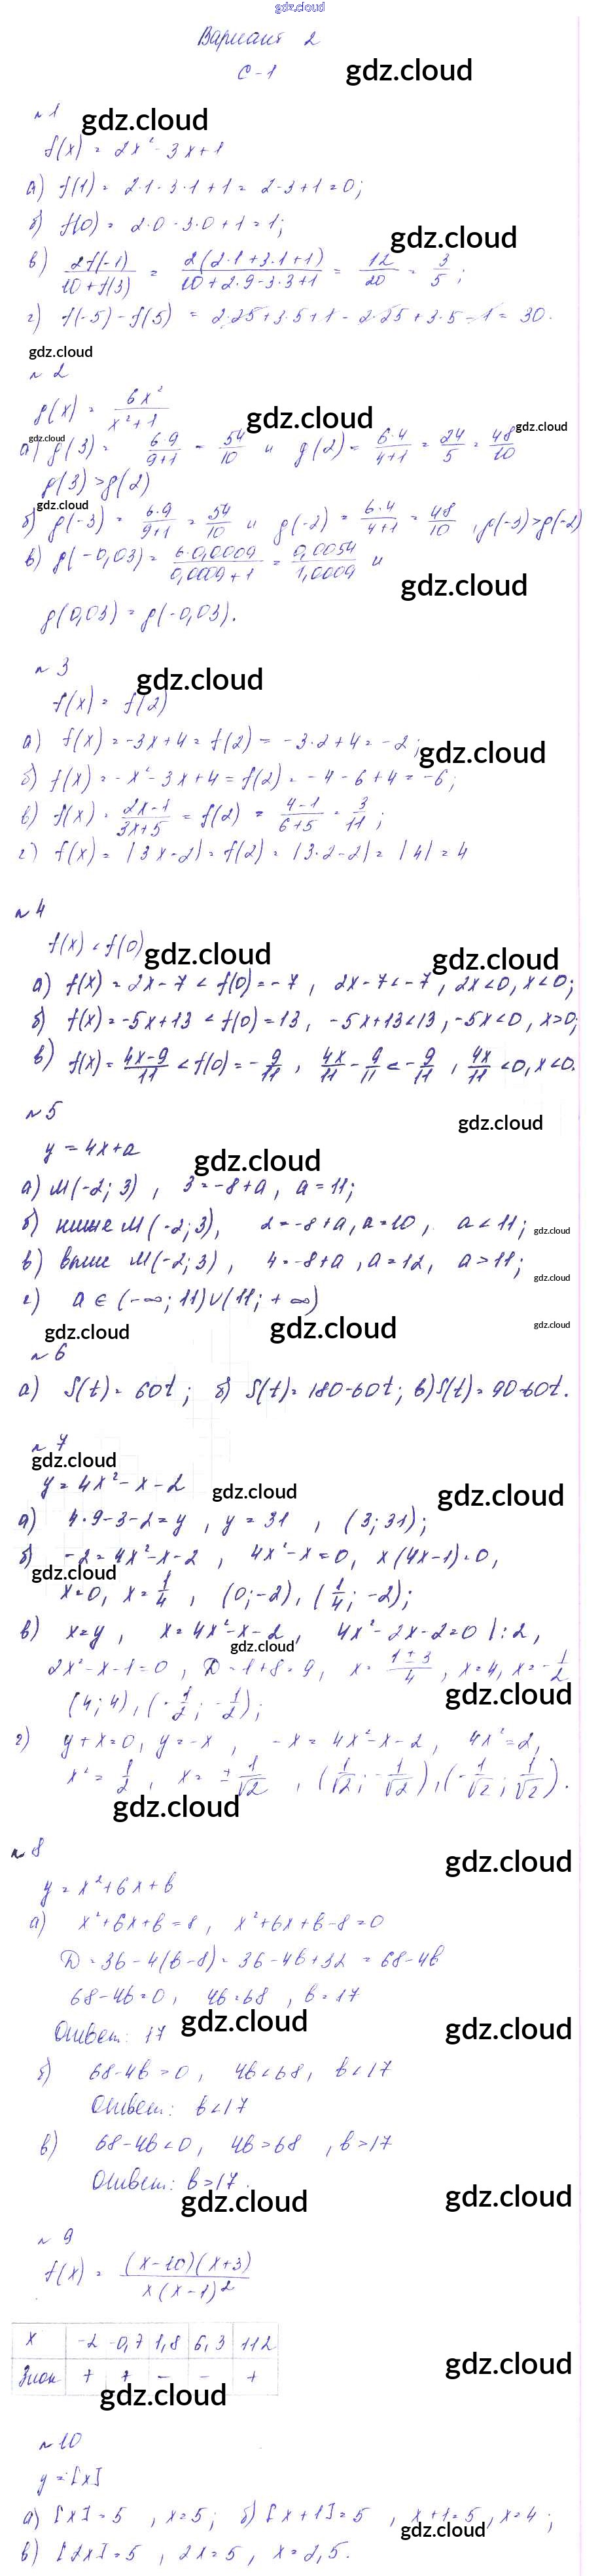 gdz.cloud
Вариант 2
С-1 gdz.cloud
№1 gdz.cloud
f(x) = 2x² - 3x + 1
а) f(1) = 2·1 - 3·1 + 1 = 2 - 3 + 1 = 0;
б) f(0) = 2·0 - 3·0 + 1 = 1;
gdz.cloud
в) 2f(-1)/(10 + f(3)) = 2(2·1+3·1+1)/(10+2·9-3·3+1) = 12/20 = 3/5;
г) f(-5) - f(5) = 2·25+3·5+1 - 2·25+3·5-1 = 30.
gdz.cloud
№2
g(x) = 6x²/(x²+1)
gdz.cloud gdz.cloud
gdz.cloud
а) g(3) = 6·9/(9+1) = 54/10 и g(2) = 6·4/(4+1) = 24/5 = 48/10
g(3) > g(2)
gdz.cloud
б) g(-3) = 6·9/(9+1) = 54/10 и g(-2) = 6·4/(4+1) = 48/10, g(-3) > g(-2)
в) g(-0,03) = 6·0,0009/(0,0009+1) = 0,0054/1,0009 и
gdz.cloud
g(0,03) = g(-0,03).
№3 gdz.cloud
f(x) = f(2)
а) f(x) = -3x+4 = f(2) = -3·2+4 = -2;
gdz.cloud
б) f(x) = -x² - 3x + 4 = f(2) = -4 - 6 + 4 = -6;
в) f(x) = (2x-1)/(3x+5) = f(2) = (4-1)/(6+5) = 3/11;
г) f(x) = |3x-2| = f(2) = |3·2-2| = |4| = 4
№4
f(x) < f(0) gdz.cloud gdz.cloud
а) f(x) = 2x-7 < f(0) = -7, 2x-7 < -7, 2x<0, x<0;
б) f(x) = -5x+13 < f(0) = 13, -5x+13<13, -5x<0, x>0;
в) f(x) = (4x-9)/11 < f(0) = -9/11, 4x/11 - 9/11 < -9/11, 4x/11 < 0, x<0.
№5 gdz.cloud
y = 4x+a gdz.cloud
а) M(-2; 3), 3 = -8+a, a = 11;
б) ниже M(-2; 3), 2 = -8+a, a = 10, a < 11; gdz.cloud
в) выше M(-2; 3), 4 = -8+a, a = 12, a > 11; gdz.cloud
г) a ∈ (-∞; 11)∪(11; +∞)
gdz.cloud gdz.cloud gdz.cloud
№6
а) S(t) = 60t; б) S(t) = 180-60t; в) S(t) = 90-60t.
№7
gdz.cloud
y = 4x² - x - 2 gdz.cloud gdz.cloud
а) 4·9-3-2 = y, y = 31, (3; 31);
б) -2 = 4x²-x-2, 4x²-x = 0, x(4x-1) = 0,
gdz.cloud
x = 0, x = 1/4, (0; -2), (1/4; -2);
в) x = y, x = 4x²-x-2, 4x²-2x-2 = 0 |:2,
gdz.cloud
2x²-x-1 = 0, D = 1+8 = 9, x = (1±3)/4, x = 4, x = -1/2
gdz.cloud
(4; 4), (-1/2; -1/2);
г) y+x = 0, y = -x, -x = 4x²-x-2, 4x² = 2,
x² = 1/2, x = ±1/√2, (1/√2; -1/√2), (-1/√2; 1/√2).
gdz.cloud
№8 gdz.cloud
y = x²+6x+b
а) x²+6x+b = 8, x²+6x+b-8 = 0
D = 36-4(b-8) = 36-4b+32 = 68-4b
68-4b = 0, 4b = 68, b = 17
Ответ: 17 gdz.cloud gdz.cloud
б) 68-4b > 0, 4b < 68, b < 17
Ответ: b < 17
в) 68-4b < 0, 4b > 68, b > 17
Ответ: b > 17.
gdz.cloud gdz.cloud
№9
f(x) = (x-10)(x+3)/(x(x-1)²)
x -2 -0,7 1,8 6,3 112
Знак + + - - +
gdz.cloud
gdz.cloud
№10
y = [x]
а) [x] = 5, x = 5; б) [x+1] = 5, x+1 = 5, x = 4;
gdz.cloud
в) [2x] = 5, 2x = 5, x = 2,5.